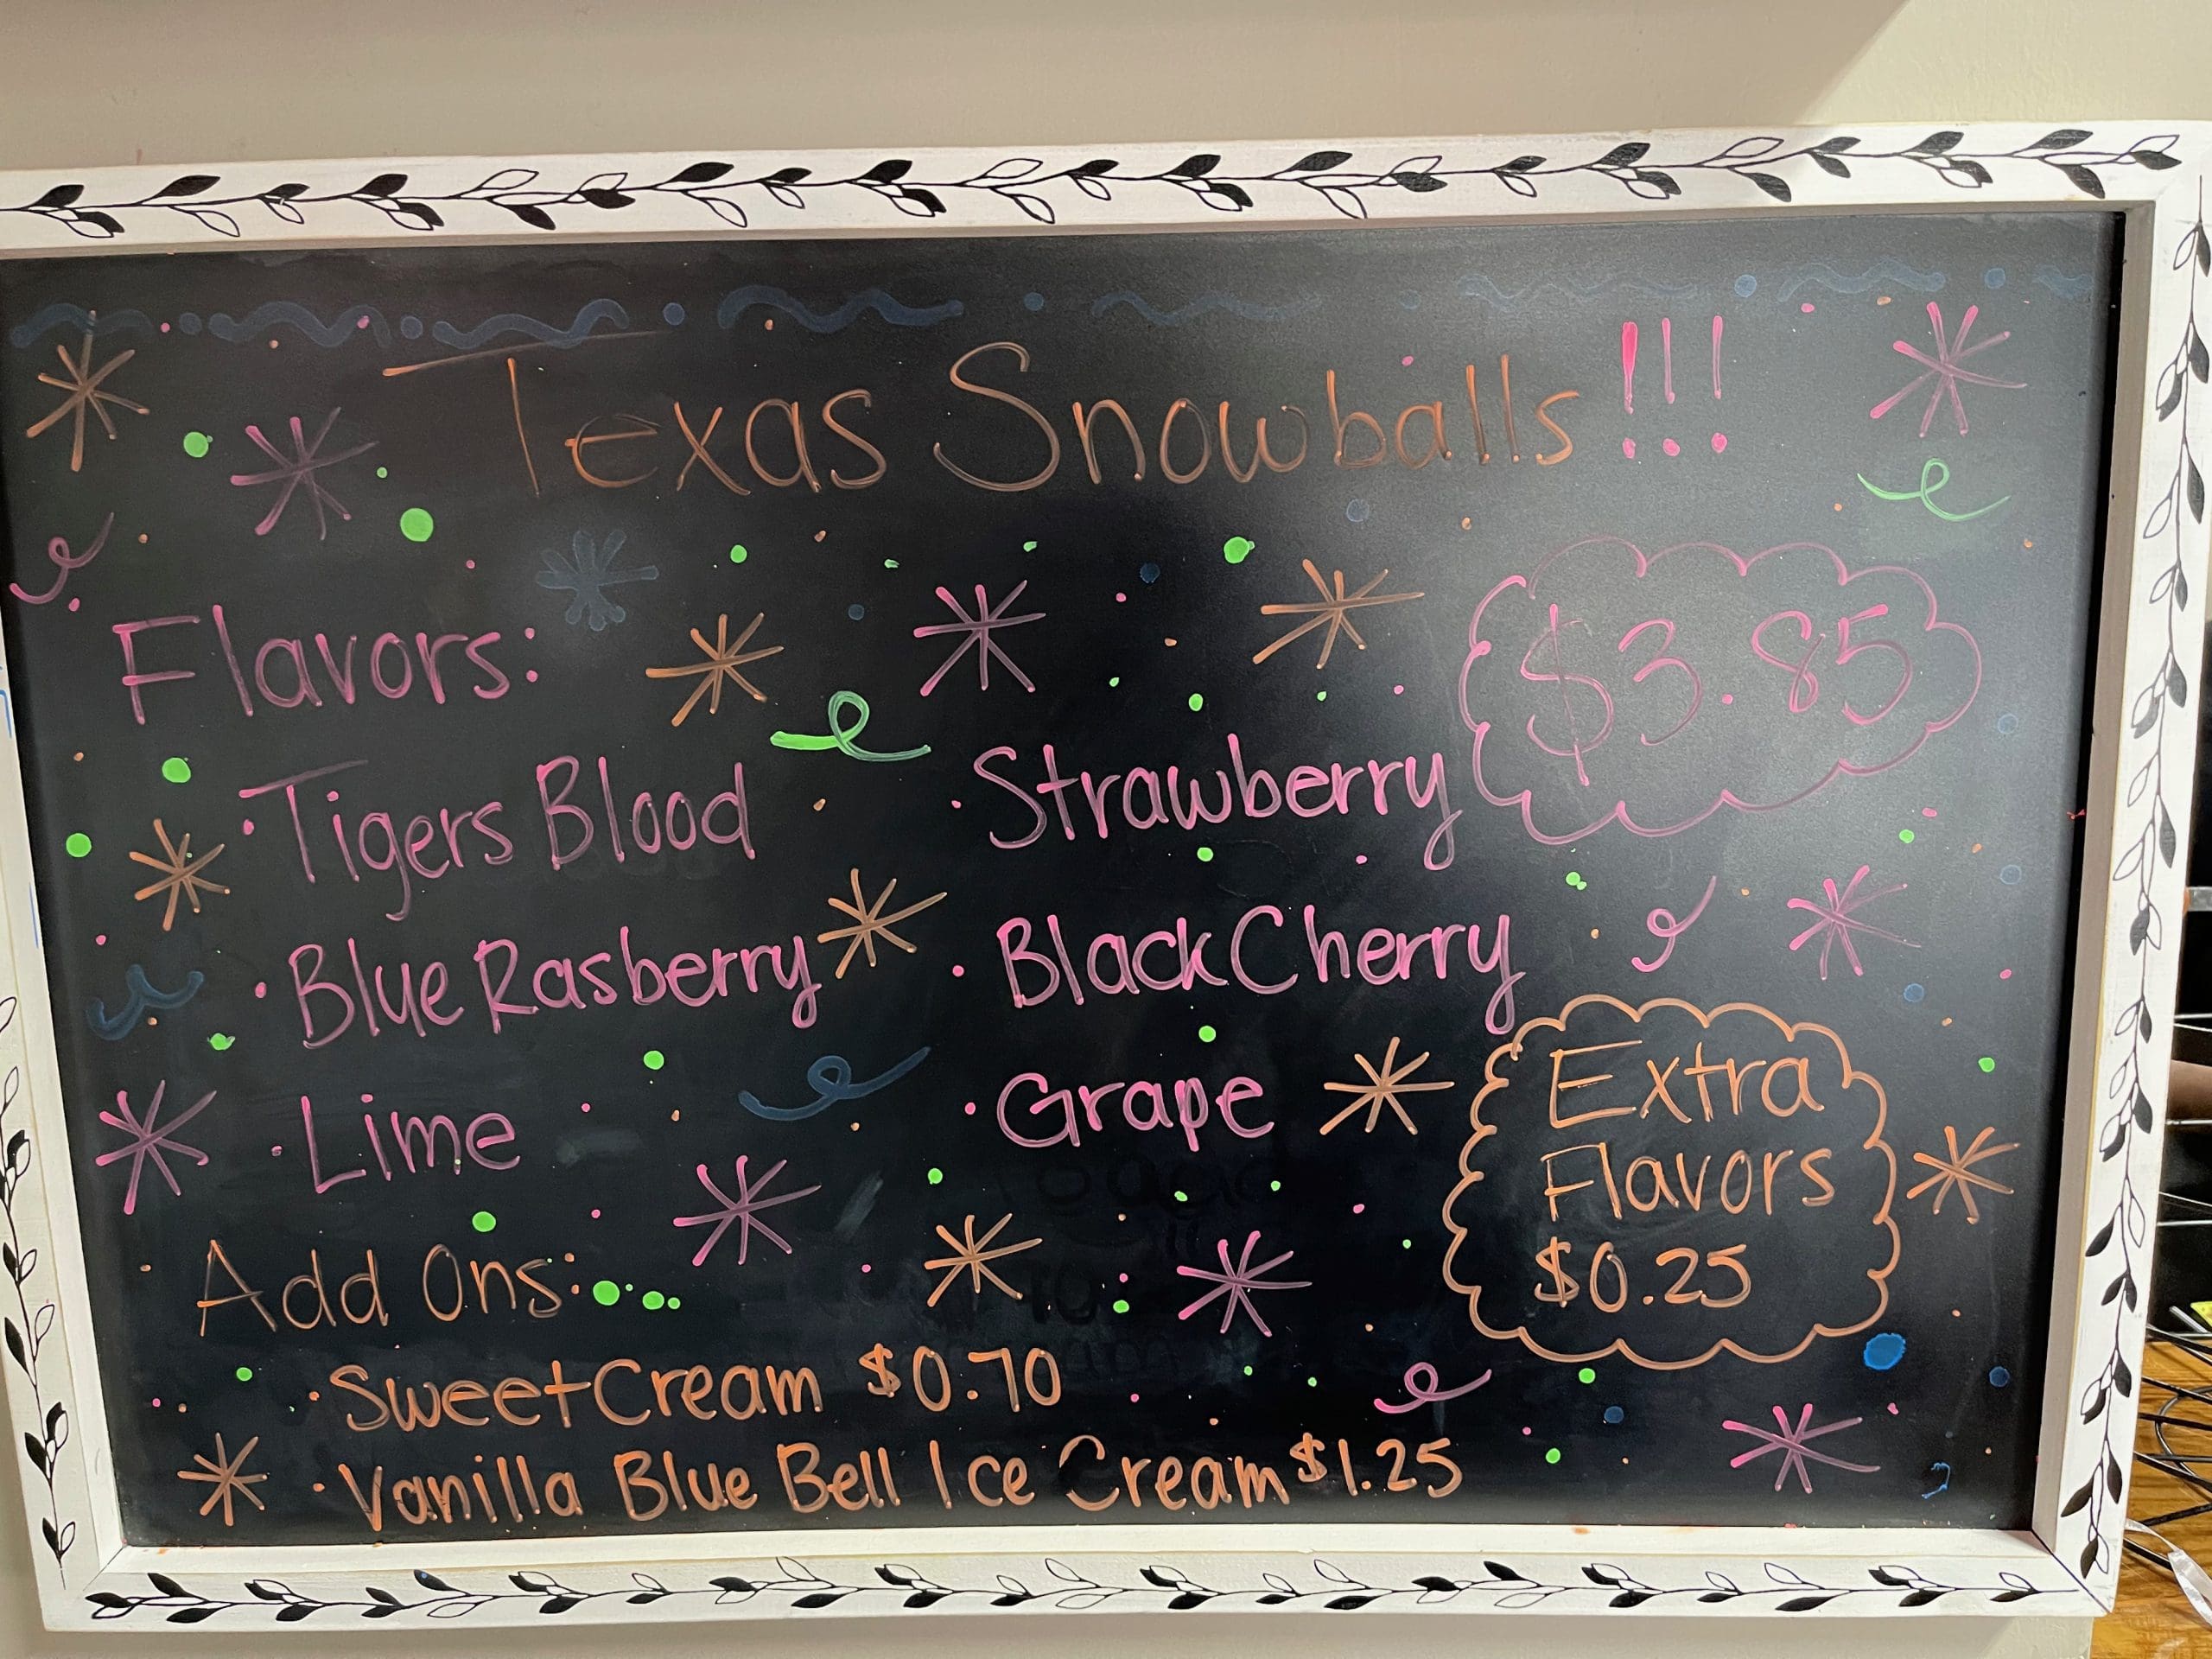 Texas Snowballs!!!
$3.85
Flavors:
· Tigers Blood
· Blue Rasberry
· Lime
· Strawberry
· Black Cherry
· Grape
Extra
Flavors
$0.25
Add Ons:
· Sweet Cream $0.70
· Vanilla Blue Bell Ice Cream $1.25